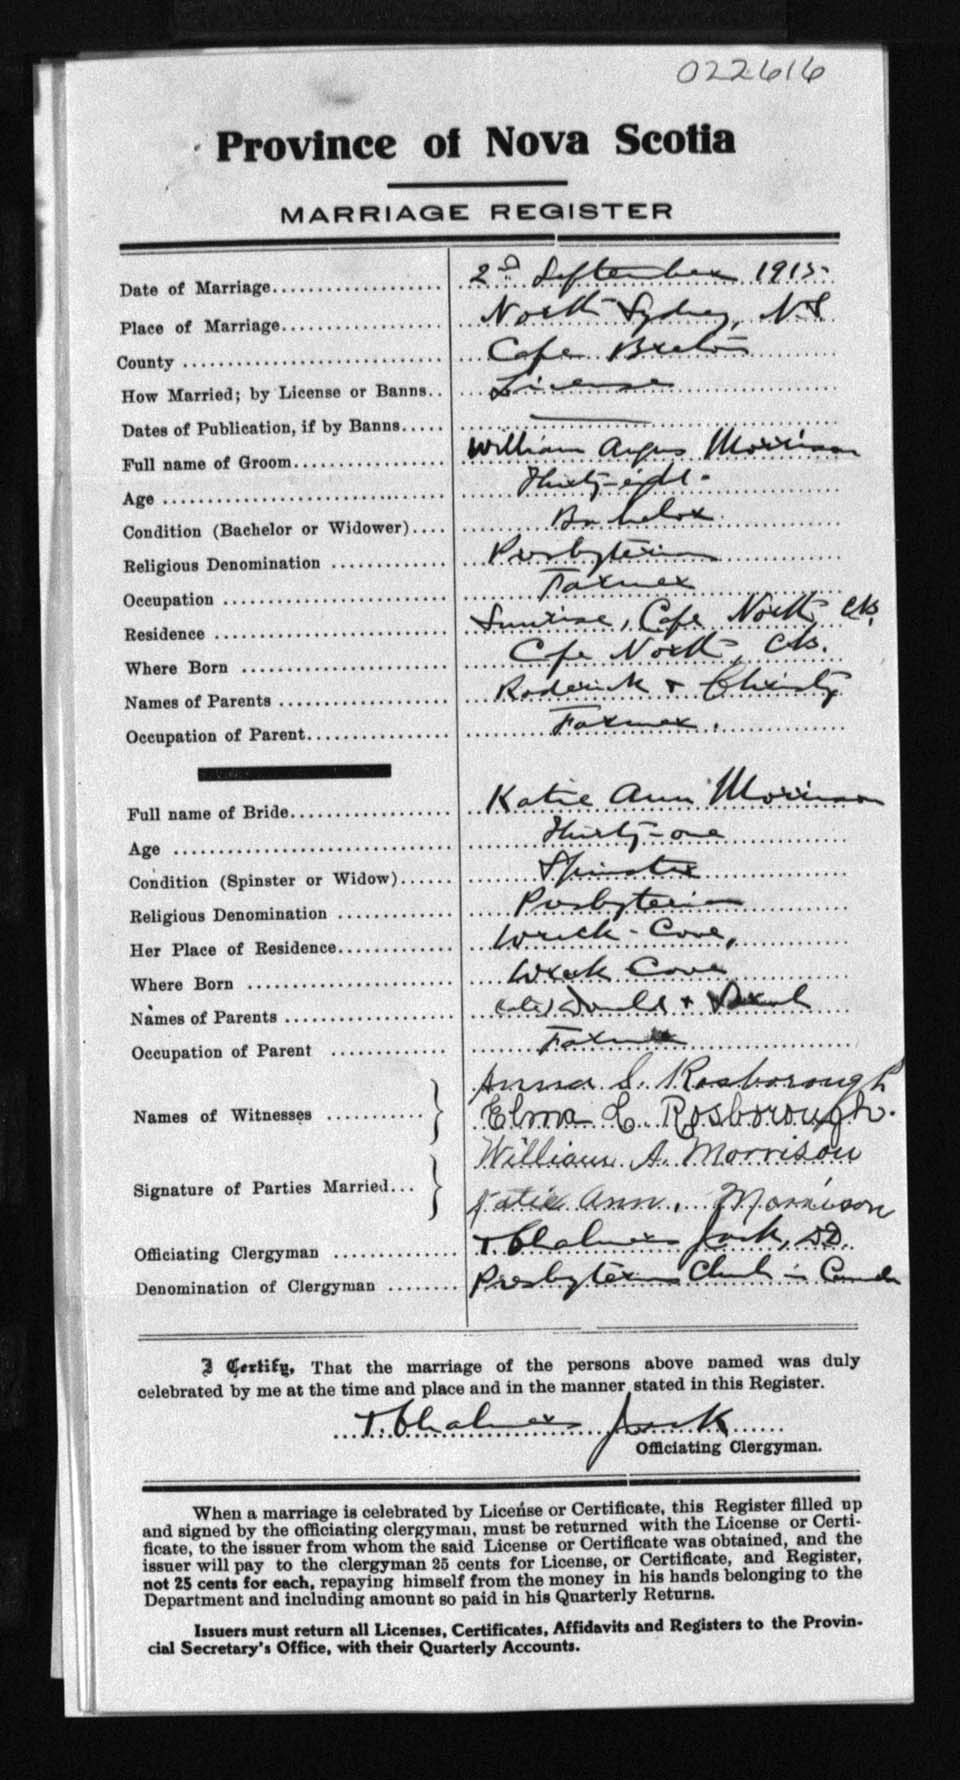 022616
Province of Nova Scotia
MARRIAGE REGISTER
Date of Marriage 2nd September 1915
Place of Marriage North Sydney, N.S
County Cape Breton
How Married; by License or Banns License
Dates of Publication, if by Banns
Full name of Groom William Angus Morrison
Age Thirty-eight
Condition (Bachelor or Widower) Bachelor
Religious Denomination Presbyterian
Occupation Farmer
Residence Sunrise, Cape North, C.B.
Where Born Cape North, C.B.
Names of Parents Roderick + Christy
Occupation of Parent Farmer
Full name of Bride Katie Ann Morrison
Age Thirty-one
Condition (Spinster or Widow) Spinster
Religious Denomination Presbyterian
Her Place of Residence Wreck-Cove,
Where Born Wreck Cove
Names of Parents Donald +
Occupation of Parent Farmer
Names of Witnesses Anna S. Rosborough
Elma E. Rosborough.
Signature of Parties Married William A. Morrison
Katie Ann. Morrison
Officiating Clergyman T Chalmers Jack, DD.
Denomination of Clergyman Presbyterian Church in Canada
I Certify, That the marriage of the persons above named was duly
celebrated by me at the time and place and in the manner stated in this Register.
T. Chalmers Jack
Officiating Clergyman.
When a marriage is celebrated by License or Certificate, this Register filled up
and signed by the officiating clergyman, must be returned with the License or Certi-
ficate, to the issuer from whom the said License or Certificate was obtained, and the
issuer will pay to the clergyman 25 cents for License, or Certificate, and Register,
not 25 cents for each, repaying himself from the money in his hands belonging to the
Department and including amount so paid in his Quarterly Returns.
Issuers must return all Licenses, Certificates, Affidavits and Registers to the Provin-
cial Secretary's Office, with their Quarterly Accounts.